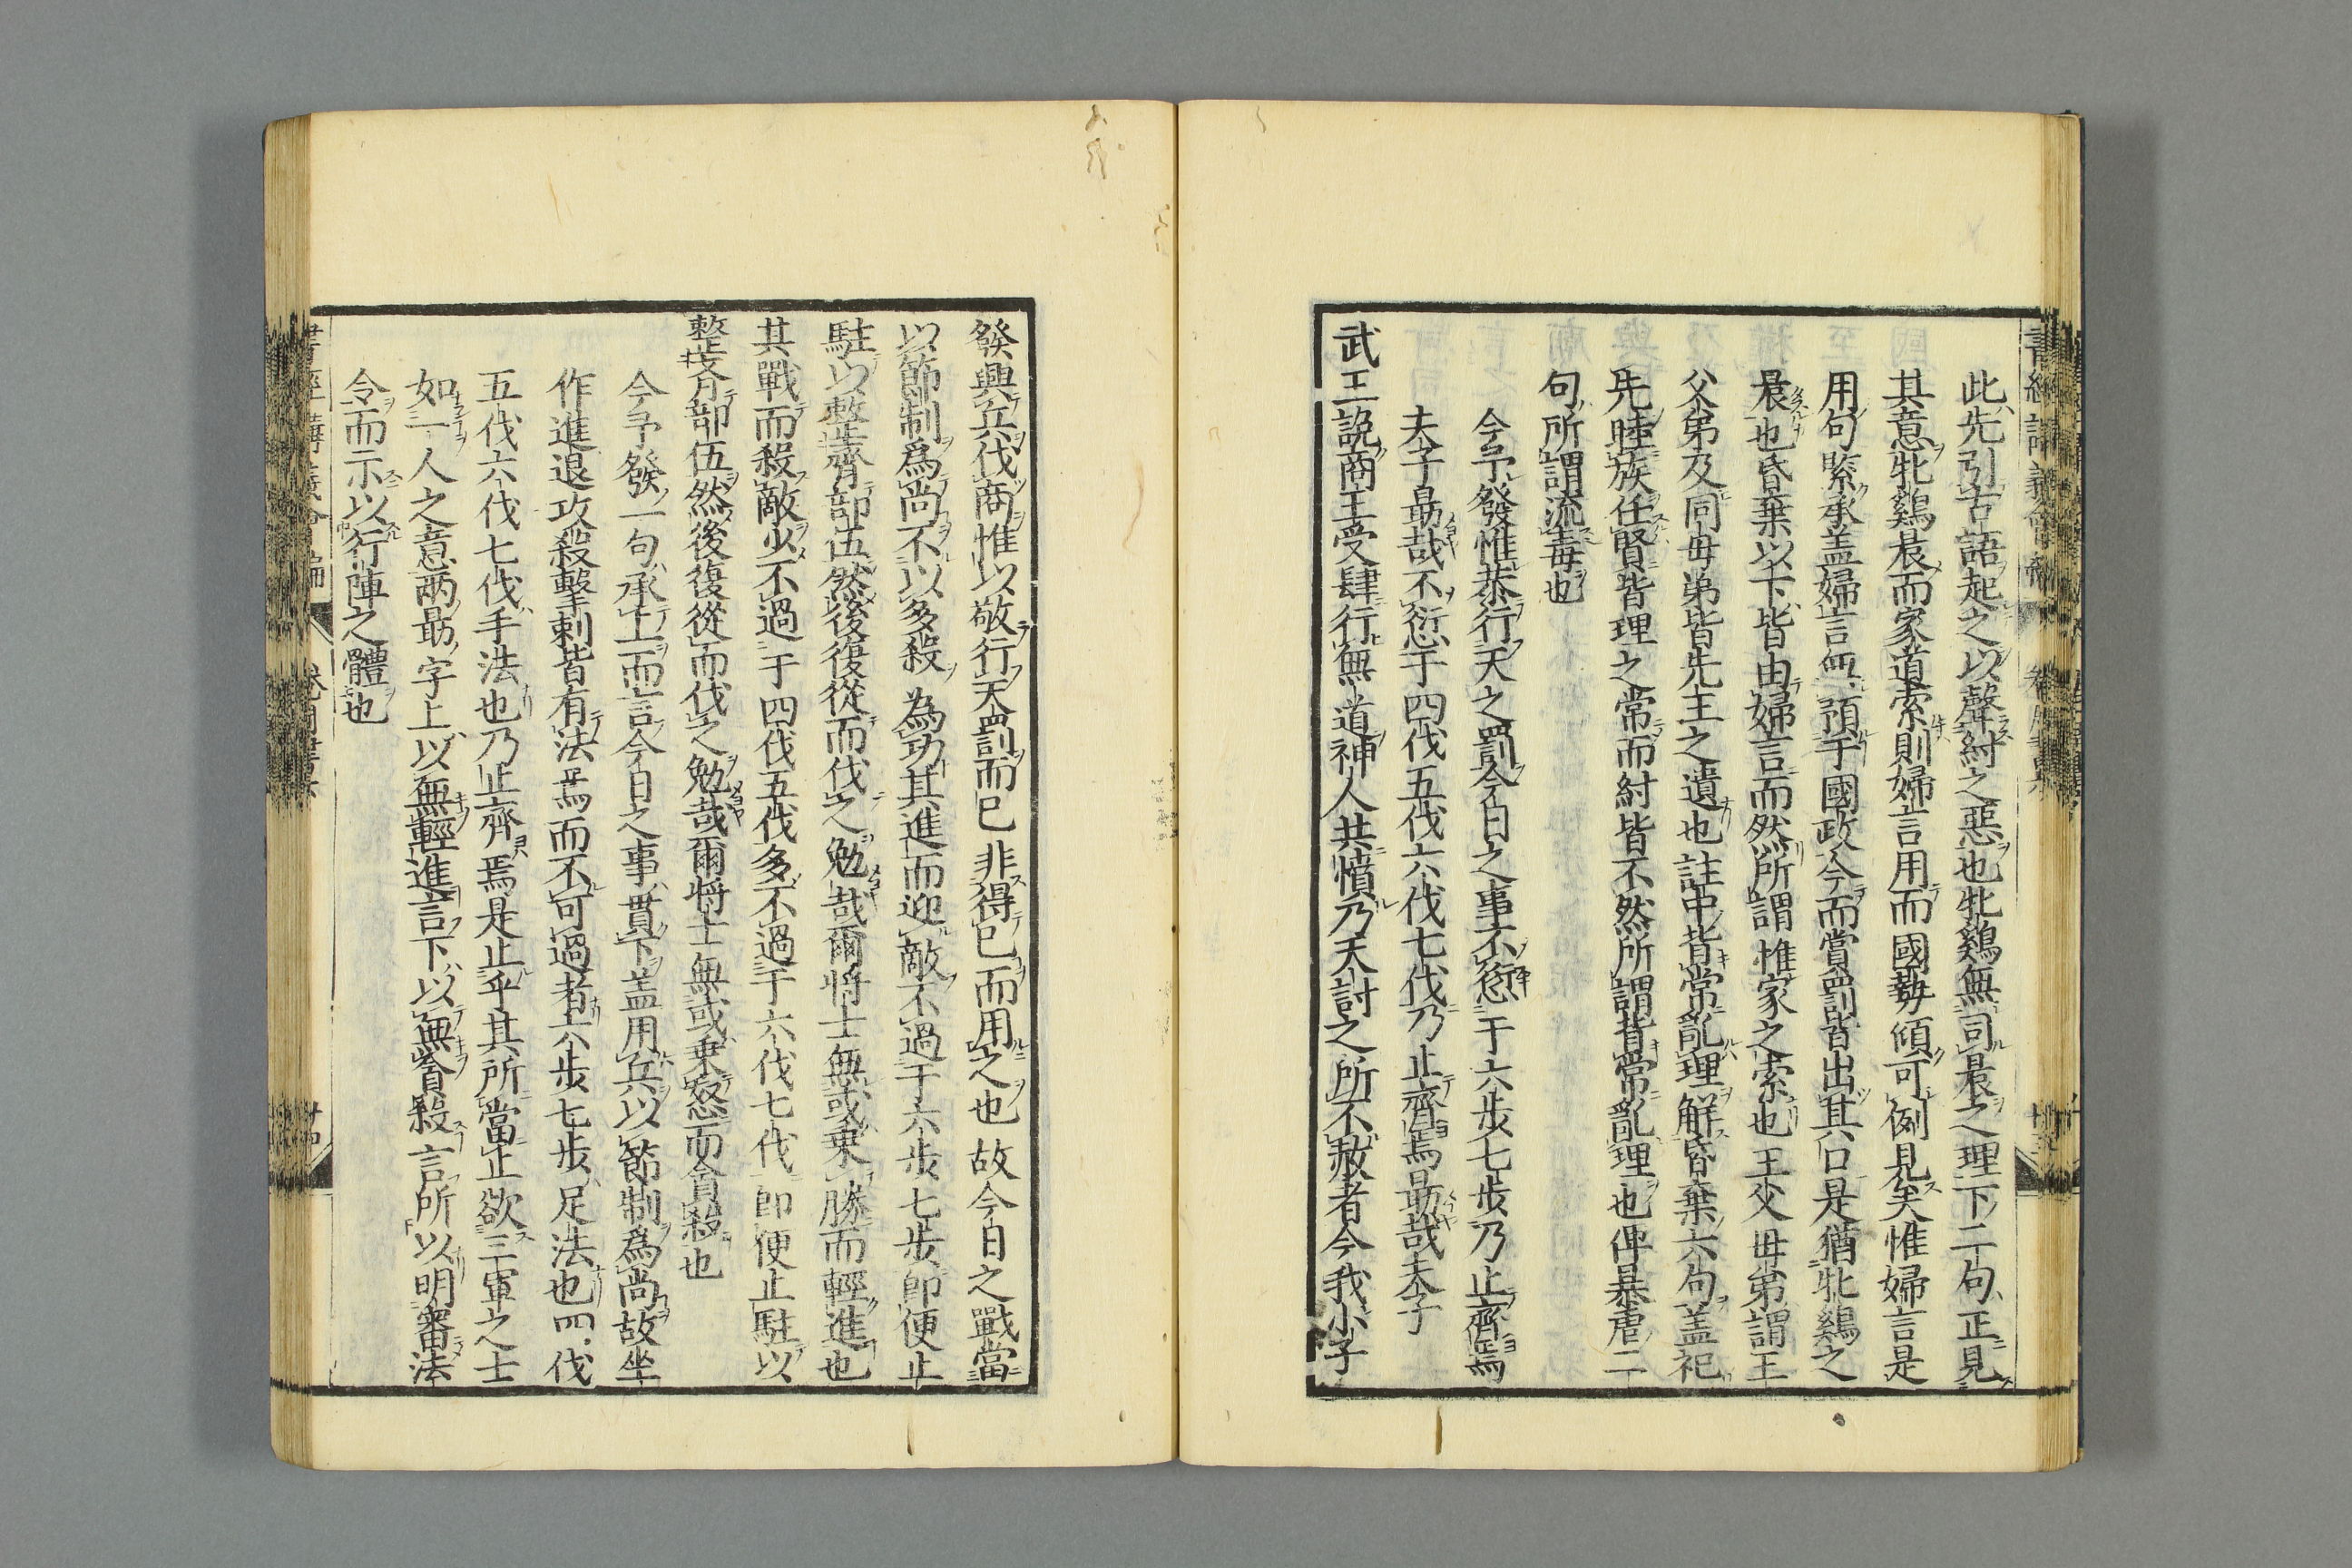 此先引古語起之以聲紂之惡也牝鷄無司晨之理下二句正見
其意牝鷄晨而家道索則婦言用而國勢傾可例見矣惟婦言是
用句緊承盖婦言無預于國政今而賞罰皆出其口是猶牝鷄之
晨也昏棄以下皆由婦言而然所謂惟家之索也王父母弟謂王
父弟及同母弟皆先王之遺也註中背常亂理解昏棄六句盖祀
先睦族任賢皆理之常而紂皆不然所謂背常亂理也俾暴虐二
句所謂流毒也
今予發惟恭行天之罰今日之事不愆于六步七步乃止齊焉
夫子勗哉不愆于四伐五伐六伐七伐乃止齊焉勗哉夫子
武王説商王受肆行無道神人共憤乃天討之所不赦者今我小子
發興兵伐商惟以敬行天罰而已非得已而用之也故今日之戰當
以節制爲尚不以多殺為功其進而迎敵不過于六步七步卽便止
駐以整齊部伍然後復從而伐之勉哉爾將士無或乗勝而輕進也
其戰而殺敵少不過于四伐五伐多不過于六伐七伐卽便止駐以
整齊部伍然後復從而伐之勉哉爾將士無或乗怒而貪殺也
今予發一句承上而言今日之事貫下盖用兵以節制爲尚故坐
作進退攻殺擊刺皆有法焉而不可過者六步七步足法也四伐
五伐六伐七伐手法也乃止齊焉是止乎其所當止欲三軍之士
如一人之意兩勗字上以無輕進言下以無貪殺言所以明審法
令而示以行陣之體也